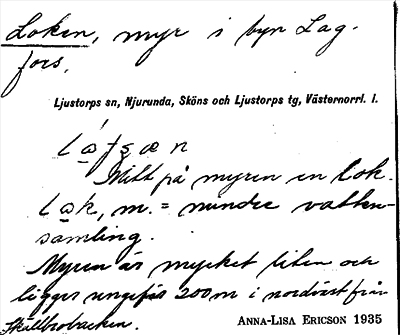 Loken, myr i byn Lag-
fors.
Ljustorps sn, Njurunda, Sköns och Ljustorps tg, Västernorrl. l.
Mitt på myren en lok.
m. = mindre vatten-
samling.
Myren är mycket liten och
ligger ungefär 200 m i nordväst från
ANNA-LISA ERICSON 1935